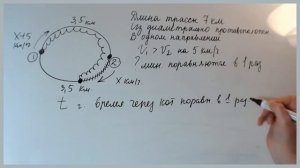 3,5 км
X+5
км/г
1
2
X км/г.
3,5 км
Длина трассы 7 км
Из диаметрально противополож
В одном направлении
V₁ > V₂ на 5 км/г.
? мин. поравняются в 1 раз
t г. время через кот поравн в 1 раз